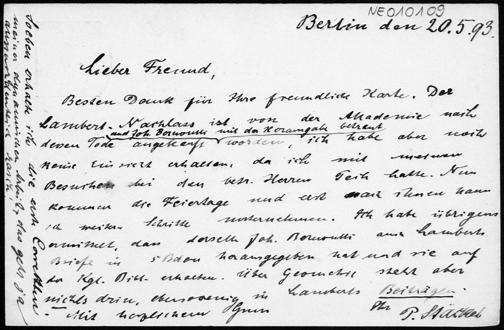 NE010109
Berlin den 20.5.93.
Lieber Freund,
Besten Dank für Ihre freundliche Karte. Der
Lambert-Nachlass ist von der Akademie nach
und Joh. Bernoulli mit der Herausgabe betraut
dessen Tode angekauft worden, ich habe aber noch
keine Einsicht erhalten, da ich mit meinen
Besuchen bei den betr. Herren Pech hatte. Nun
kommen die Feiertage und erst nach ihnen kann
ich weitere Schritte unternehmen. Ich habe übrigens
ermittelt, dass derselbe Joh. Bernoulli auch Lamberts
Briefe in 5 Bden herausgegeben hat und sie auf
der Kgl. Bibl. erhalten. Über Geometrie steht aber
nichts drin, ebensowenig in Lamberts Beiträgen.
Mit herzlichem Gruss
Ihr
P. Stäckel
Soeben erhalte ich die erste Correctur
meiner dynamischen Arbeit, also geht sie
rasch!